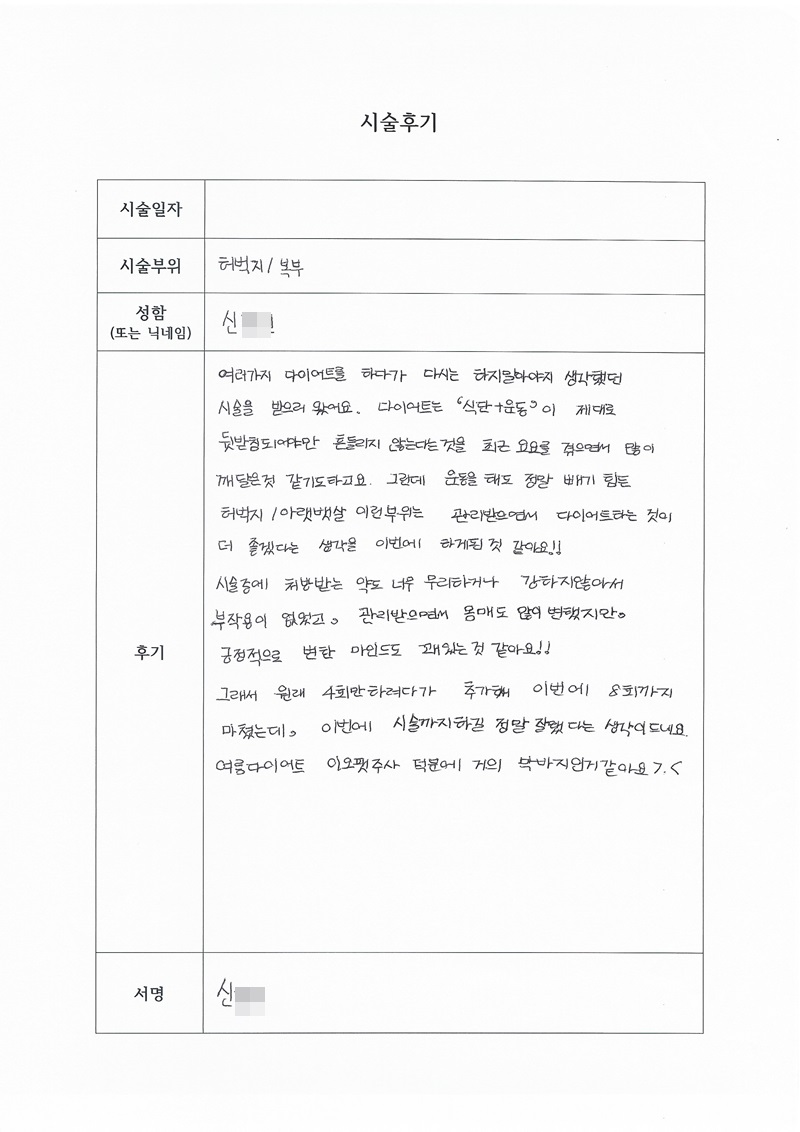 시술후기
시술일자
시술부위 허벅지 / 복부
성함
(또는 닉네임)
신
여러가지 다이어트를 하다가 다시는 하지말아야지 생각했던
시술을 받으러 왔어요. 다이어트는 "식단+운동"이 제대로
뒷받침되어야만 흔들리지 않는다는것을 최근 요요를 겪으면서 많이
깨달은것 같기도하고요. 그런데 운동을 해도 정말 빼기 힘든
허벅지/아랫뱃살 이런부위는 관리받으면서 다이어트하는 것이
더 좋겠다는 생각을 이번에 하게된것 같아요!!
시술중에 처방받는 약도 너무 무리하거나 강하지않아서
부작용이 없었고. 관리받으면서 몸매도 많이 변했지만.
후기
긍정적으로 변한 마인드도 꽤있는것 같아요!!
그래서 원래 4회만하려다가 추가해 이번에 8회까지
마쳤는데. 이번에 시술까지하길 정말 잘했다는 생각이드네요.
여름다이어트 이오팻주사 덕분에 거의 막바지인거같아요 >.<
서명 신